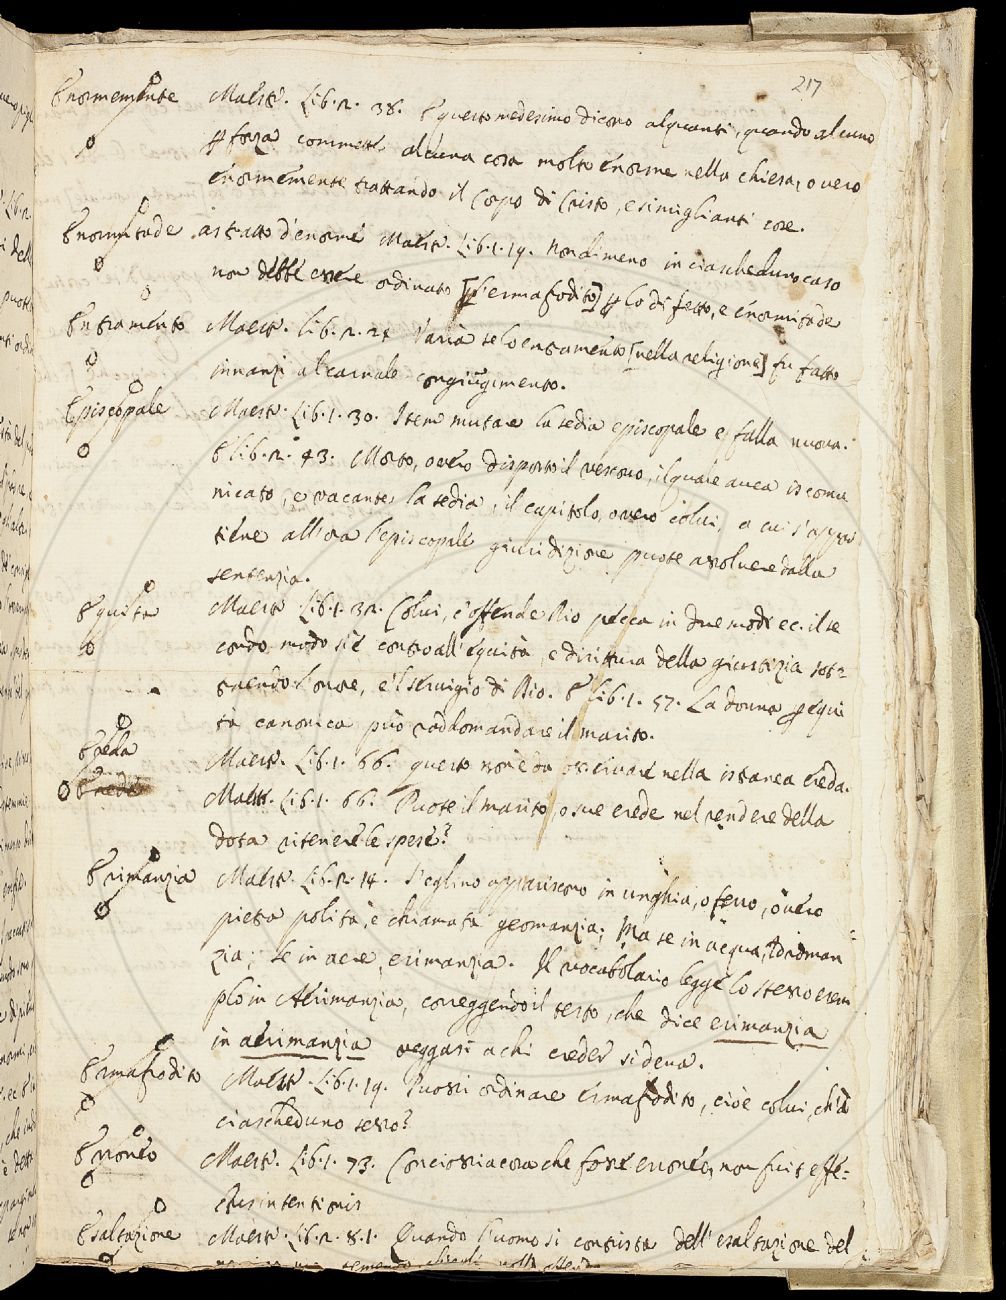 217
Enormemente Maest. Lib. 2. 38. E questo medesimo dicono alquanti, quando alcuno
forza commette alcuna cosa molto enorme nella chiesa, overo
enormemente trattando il Corpo di Cristo, e simiglianti cose.
Enormitade astratto d'enorme Maest. Lib. 1. 19. Nondimeno in ciascheduno caso
non debbe essere ordinato [l'ermafrodito] p lo difetto, e enormitade
Entramento Maest. lib. 2. 24 Varia se lo entramento [nella religione] fu fatto
innanzi al carnale congiugimento.
Episcopale Maest. Lib. 1. 30. Item mutare la sedia episcopale e falla nuova.
E lib. 2. 43. Morto, overo disposto il vescovo, il quale avea iscomu
nicato, e vacante la sedia, il capitolo, overo colui, a cui s'appar
tiene allora l'episcopale giuridizione puote asolvere dalla
sentenzia.
Equita Maest. Lib. 1. 32. Colui, c'offende Dio pecca in due modi ec. il se
condo modo si è contro all'equità, e dirittura della giustizia sot=
traendo l'onore, e 'l servigio di Dio. E Lib. 1. 57. La donna p equi
tà canonica può raddomandare il marito.
Ereda Maest. Lib. 1. 66. questo non è da osservare nella istranea ereda.
Erede Maest. Lib. 1. 66. Puote il marito, o sue erede nel rendere della
dota ritenere le spese?
Erimanzia Maest. Lib. 2. 14. S'eglino appariscono in unghia, o ferro, overo
pietra polita, è chiamata geomanzia; Ma se in acqua, Idroman
zia; se in aere, erimanzia. Il vocabolario legge lo stesso esem
plo in Aerimanzia, correggendo il testo, che dice erimanzia
in aerimanzia veggasi a chi creder si deva.
Ermafrodito Maest. Lib. 1. 19. Puossi ordinare ermafrodito, cioè colui, ch'è
ciascheduno sesso?
Erroneo Maest. Lib. 1. 73. Conciossiacosa che fosse erronea, non fuit effe=
ctus intentionis
Esaltazione Maest. Lib. 2. 81. Quando l'uomo si contrista dell'esaltazione del